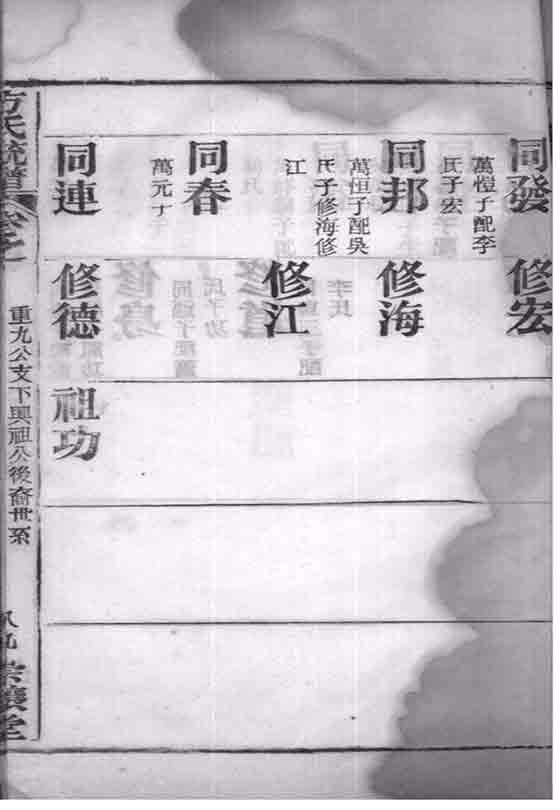 同發
萬愷子配李
氏子宏
同邦
萬恒子配吳
氏子修海修
江
同春
萬元子
同連
修宏
修海
修江
修德
祖功
方氏統譜
卷之
重九公支下興祖公後裔世系
八九
堂